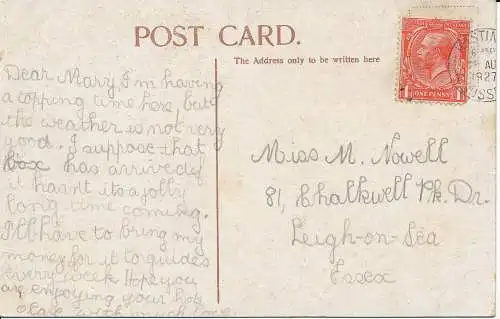 POST CARD.
The Address only to be written here
ONE PENNY
AU
1927
Dear Mary, I'm having
a topping time here, but
the weather is not very
good. I suppose that
box has arrived, if
it hasn't its a jolly
long time coming.
I'll have to bring my
money for it to guides
every week Hope you
are enjoying your hols
with much love.
Miss M. Nowell
81, Chalkwell Pk. Dr.
Leigh-on-Sea
Essex